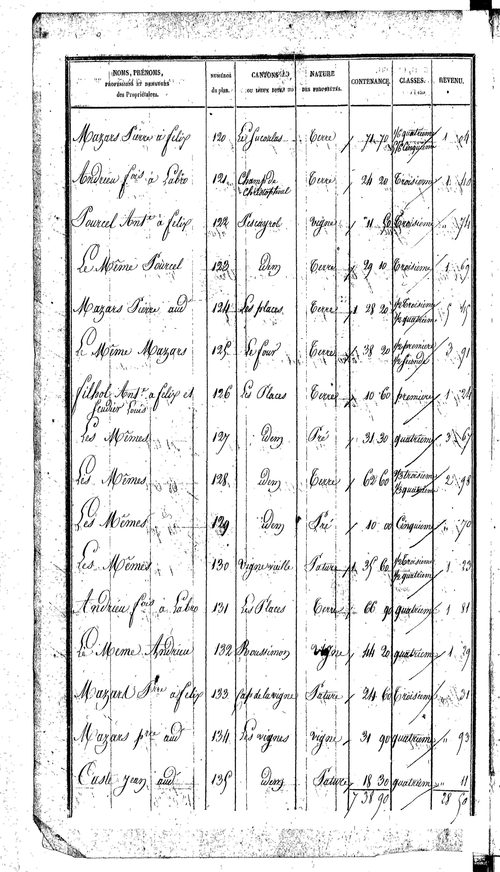 NOMS, PRÉNOMS, PROFESSIONS ET DEMEURES des Propriétaires. NUMÉROS du plan. CANTONS OU LIEUX DITS NATURE DES PROPRIÉTÉS. CONTENANCE. CLASSES. REVENU.
Mazars Pierre à felix 120 Terre 71 70 1
Andrieu fois à Labro 121 Champ de Christophol Terre 24 20 Troisieme 1 40
Pourcel Ante à felix 122 Pescayrol Vigne 11 50 Troisieme " 74
Le Même Pourcel 123 idem Terre 29 10 Troisieme 1 69
Mazars Pierre aud 124 Les places Terre 1 28 20 1/2 Troisieme 1/2 quatrieme 5 45
Le Même Mazars 125 Le four Terre 38 20 1/2 premiere 1/2 seconde 3 91
filhol Ante à felix et feudier Louis 126 Les Places Terre 10 60 premiere 1 24
Les Mêmes 127 idem Pré 31 30 quatrieme 3 67
Les Mêmes 128 idem Terre 62 60 2 98
Les Mêmes 129 idem Pré 10 00 Cinquieme " 70
Les Mêmes 130 Vigne vieille Pature 35 60 1/2 Troisieme 1/2 quatrieme 1 23
Andrieu fois à Labro 131 Les Places Terre 66 90 quatrieme 1 81
Le Meme Andrieu 132 Roussimon Vigne 44 20 quatrieme 1 29
Mazars Pre à felix 133 Cap de la vigne Pature 24 60 Troisieme 31
Mazars pre aud 134 Les vignes vigne 31 90 quatrieme " 93
jean aud 135 idem Pature 18 30 quatrieme " 11
7 38 90 28 50